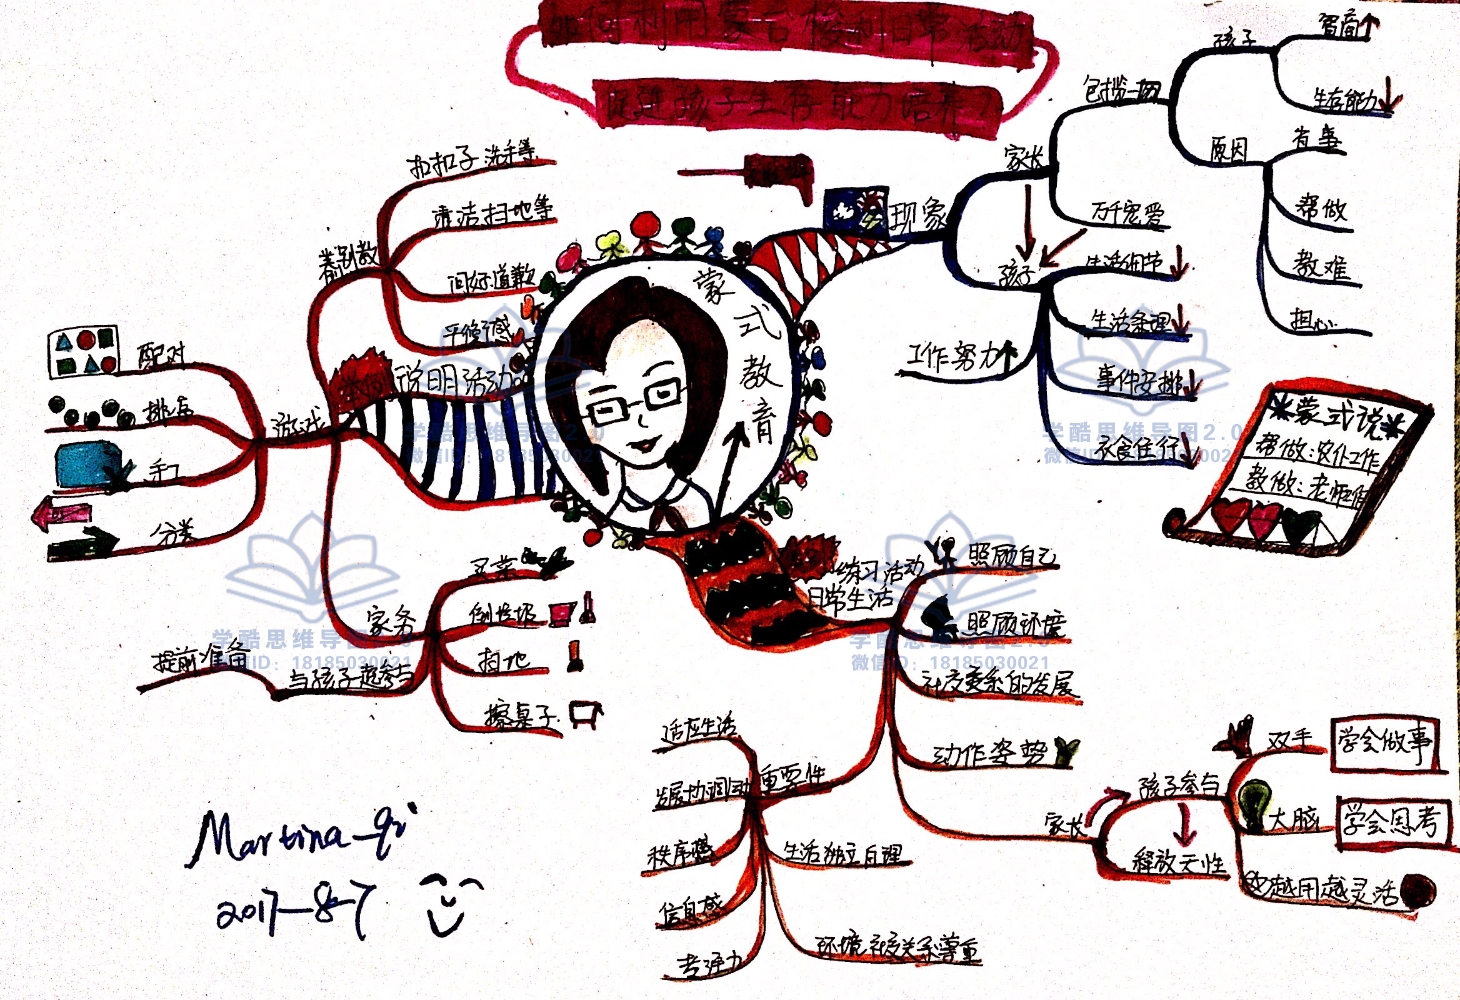 如何利用蒙台梭利日常活动
促进孩子生存能力培养?
蒙式教育
现象
家长
包揽一切
孩子
智商
生存能力
原因
有事
帮做
教难
担心
万千宠爱
孩子
生活细节
生活条理
事件安排
衣食住行
工作努力
蒙式说
帮做:仆人工作
教做:老师工作
扣扣子 洗手等
清洁扫地等
问好道歉
平衡感
说明活动
游戏
配对
排序
手工
分类
家务
买菜
倒垃圾
扫地
擦桌子
与孩子起参与
提前准备
练习活动
日常生活
照顾自己
照顾环境
社交关系的发展
动作姿势
家长
孩子参与
释放天性
双手
学会做事
大脑
学会思考
越用越灵活
重要性
适应生活
发展协调动
秩序感
信息感
专注力
生活独立自理
环境社交关系尊重
Martina-qi
2017-8-7
学酷思维导图2.0
微信ID: 18185030021
学酷思维导图2.0
微信ID: 18185030021
学酷思维导图2.0
微信ID: 18185030021
学酷思维导图2.0
微信ID: 18185030021